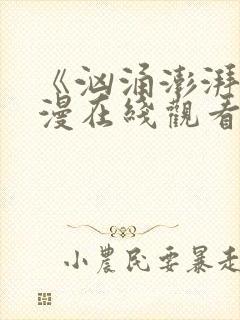 《汹涌澎湃
漫在线觀看
小農民要暴走